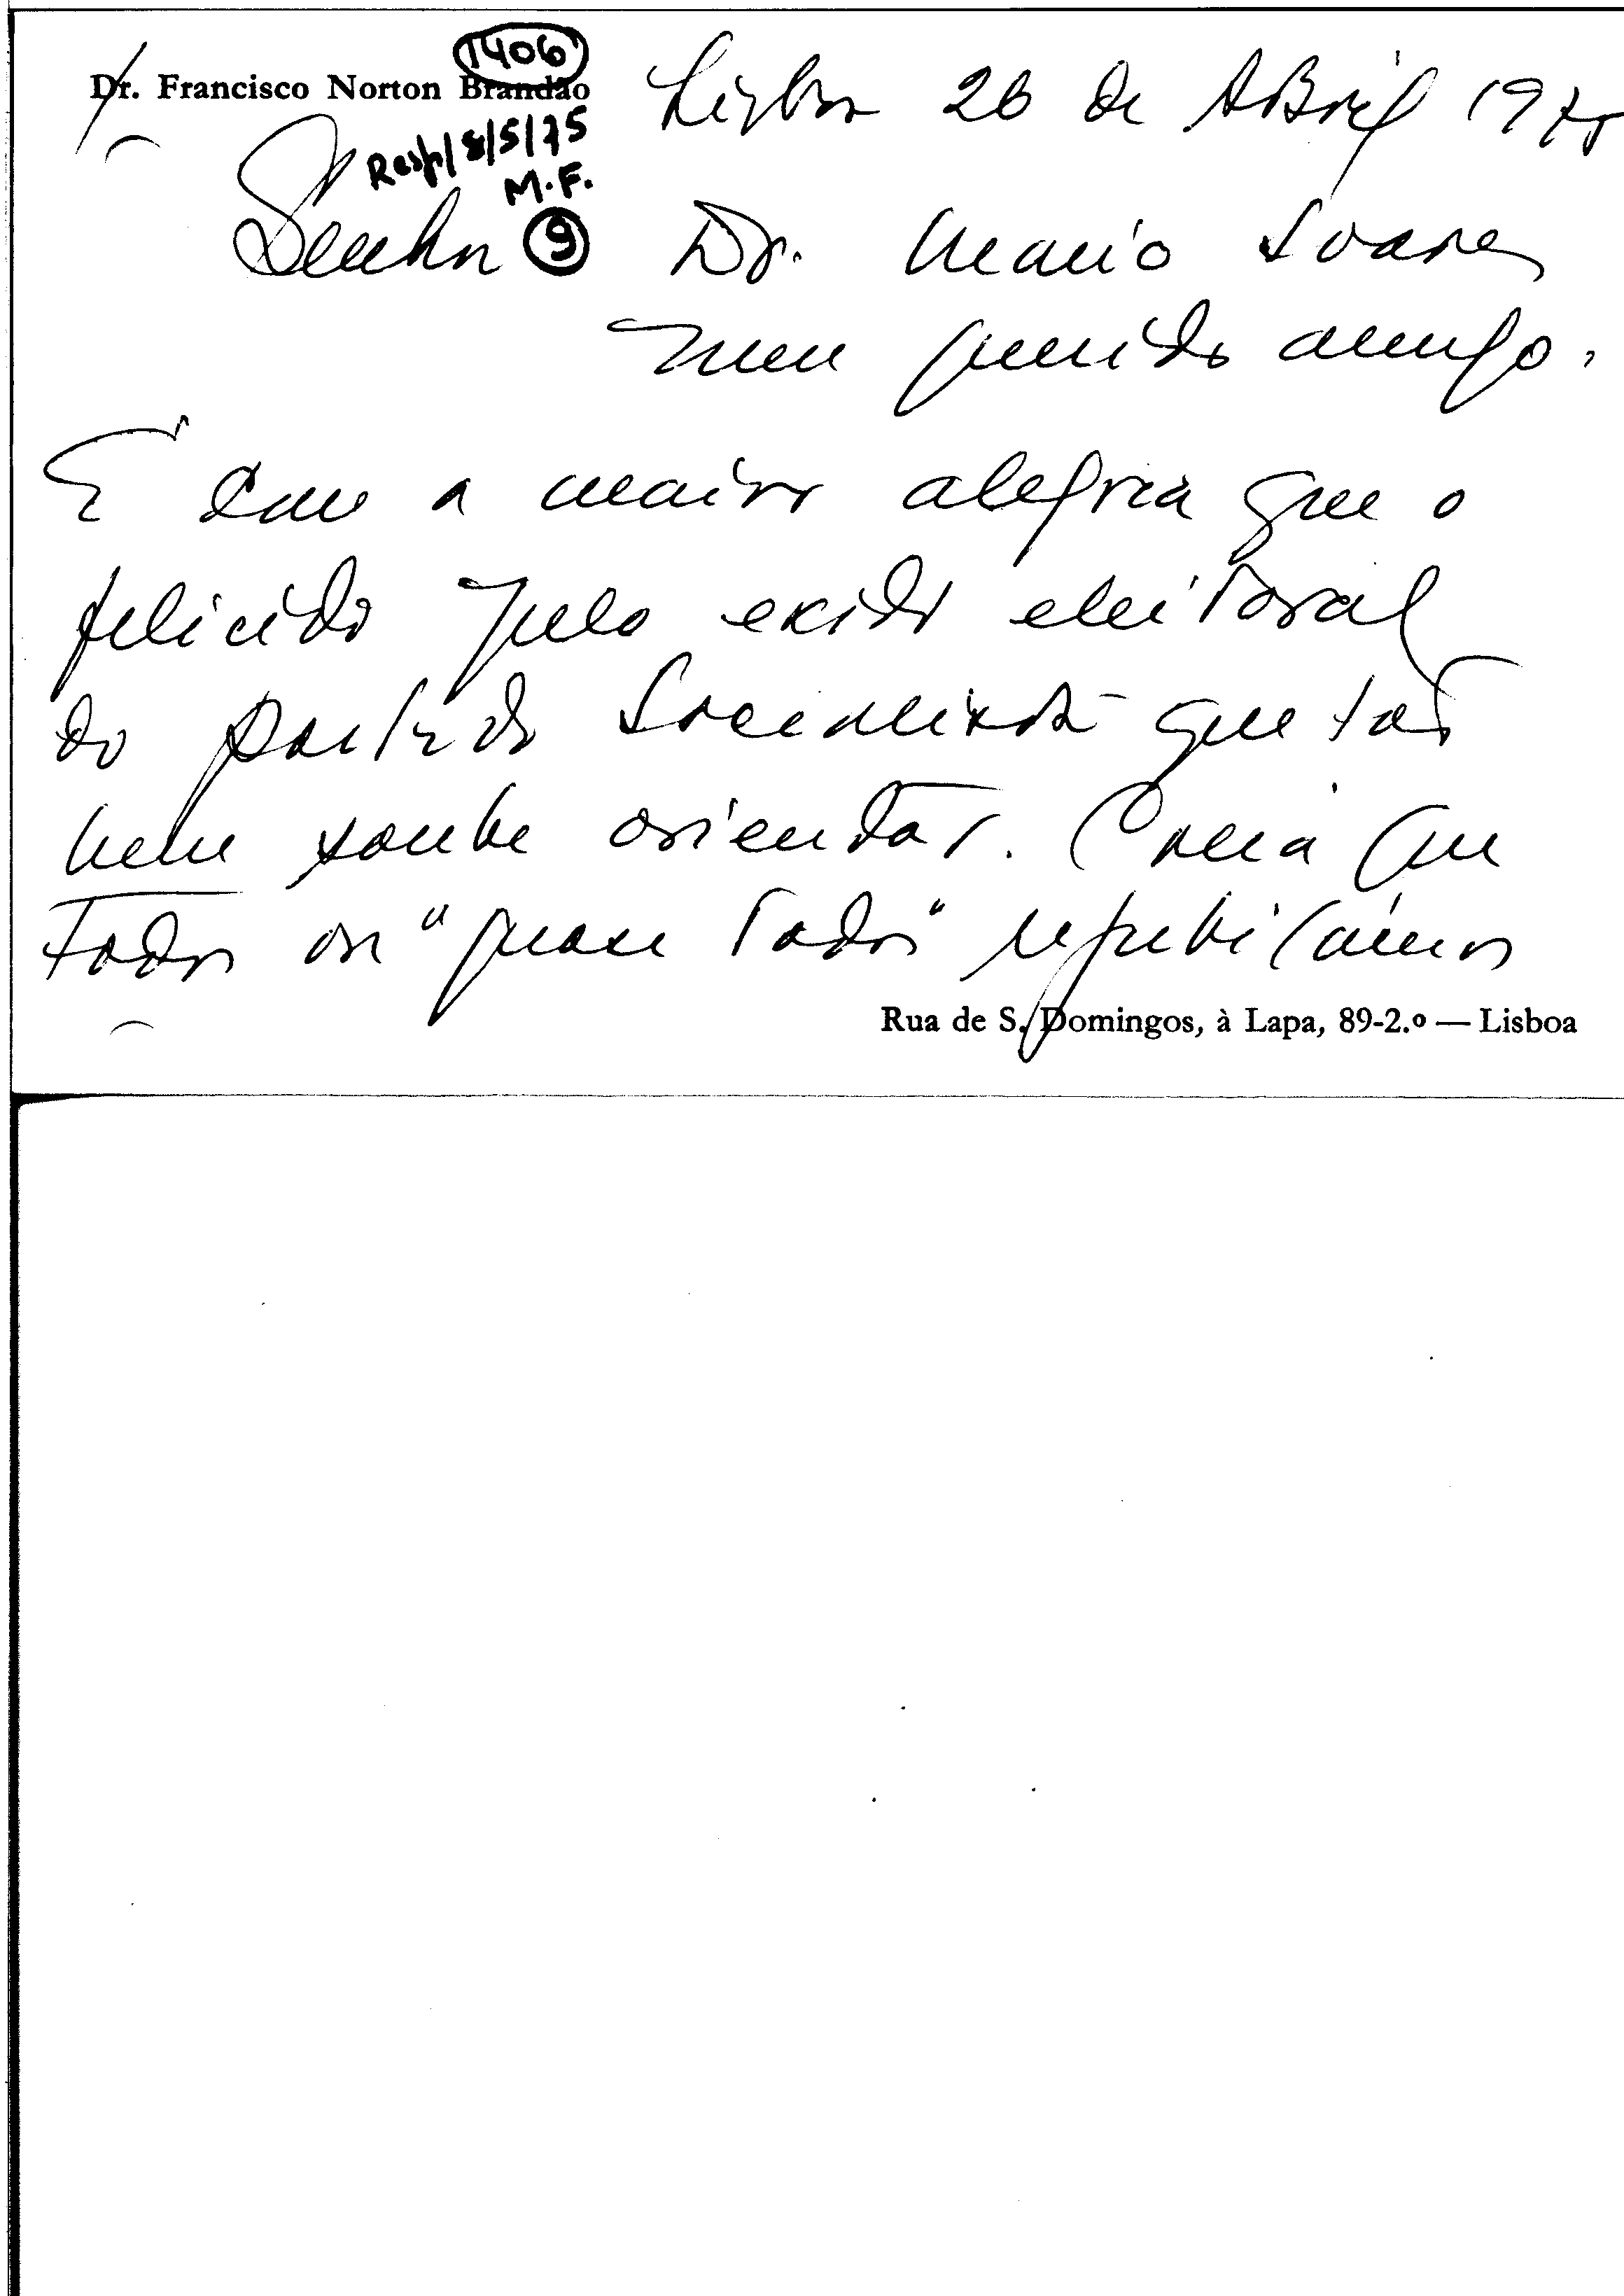 1406
Dr. Francisco Norton Brandão
Lisboa 26 de Abril 1975
Resp/8/5/75
M.F.
9
Senhor Dr. Mario Soares
meu querido amigo.
É com a maior alegria que o
felicido pelo exido eleitoral
do partido Socialista que tão
bem soube orientar. Creia que
todos ou "quase todos" republicanos
Rua de S. Domingos, à Lapa, 89-2.º — Lisboa